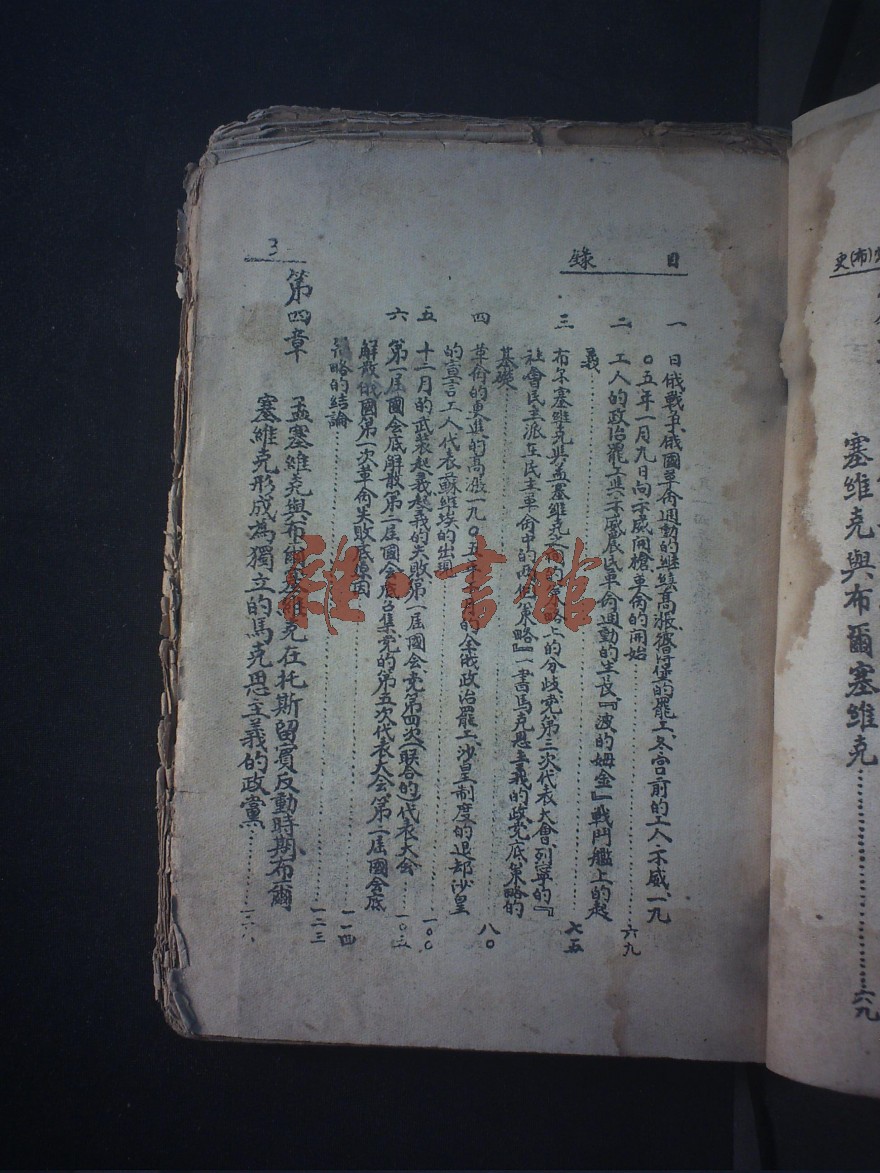 史(布)
塞維克與布爾塞維克……六九
目錄
一 日俄戰爭俄國革命運動的繼續高漲彼得堡的罷工、冬宮前的工人示威、一九
〇五年一月九日向示威開槍、革命的開始……六九
二 工人的政治罷工與示威農民革命運動的生長『波的姆金』戰鬥艦上的起
義……七五
三 布尔塞維克與孟塞維克之間的策略上的分歧党第三次代表大會列寧的『
社會民主派在民主革命中的两個策略』一書馬克思主義的政党底策略的
基礎……八〇
四 革命的更進的高漲一九〇五年十月的全俄政治罷工、沙皇制度的退却沙皇
的宣言工人代表蘇維埃的出現……
五 十二月的武裝起義起義的失敗第一届國会党第四次(联合的)代表大会……一〇三
六 第一届國会底解散第二届國会底召集党的第五次代表大会第二届國会底
解散俄國第一次革命失敗底原因……一一四
策略的結論……一二三
第四章 孟塞維克與布爾塞維克在托斯留賓反動時期布爾
塞維克形成為獨立的馬克思主義的政黨……
3
雜·書館